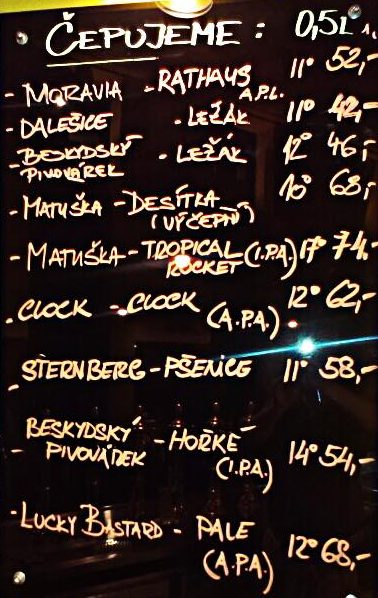 ČEPUJEME: 0,5L
- MORAVIA - RATHAUS A.P.L. 11° 52,-
- DALEŠICE - LEŽÁK 11° 42,-
- BESKYDSKÝ PIVOVÁREK - LEŽÁK 12° 46,-
- MATUŠKA - DESÍTKA (VÝČEPNÍ) 10° 68,-
- MATUŠKA - TROPICAL ROCKET (I.P.A.) 17° 74,-
- CLOCK - CLOCK (A.P.A.) 12° 62,-
- STERNBERG - PŠENICE 11° 58,-
- BESKYDSKÝ PIVOVÁREK - HOŘKÉ (I.P.A.) 14° 54,-
- LUCKY BASTARD - PALE (A.P.A.) 12° 68,-